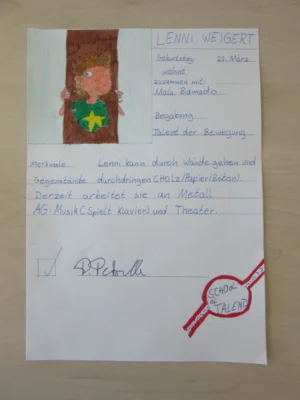 LENNI WEIGERT
Geburtstag 23. März
wohnt
zusammen mit:
Mala Bamadio
Begabung:
Talent der Bewegung
Merkmale: Lenni kann durch Wände gehen und
Gegenstände durchdringen (Holz/Papier/Beton).
Derzeit arbeitet sie an Metall
AG: Musik (Spielt Klavier) und Theater.
SCHOOL
OF
TALENTS